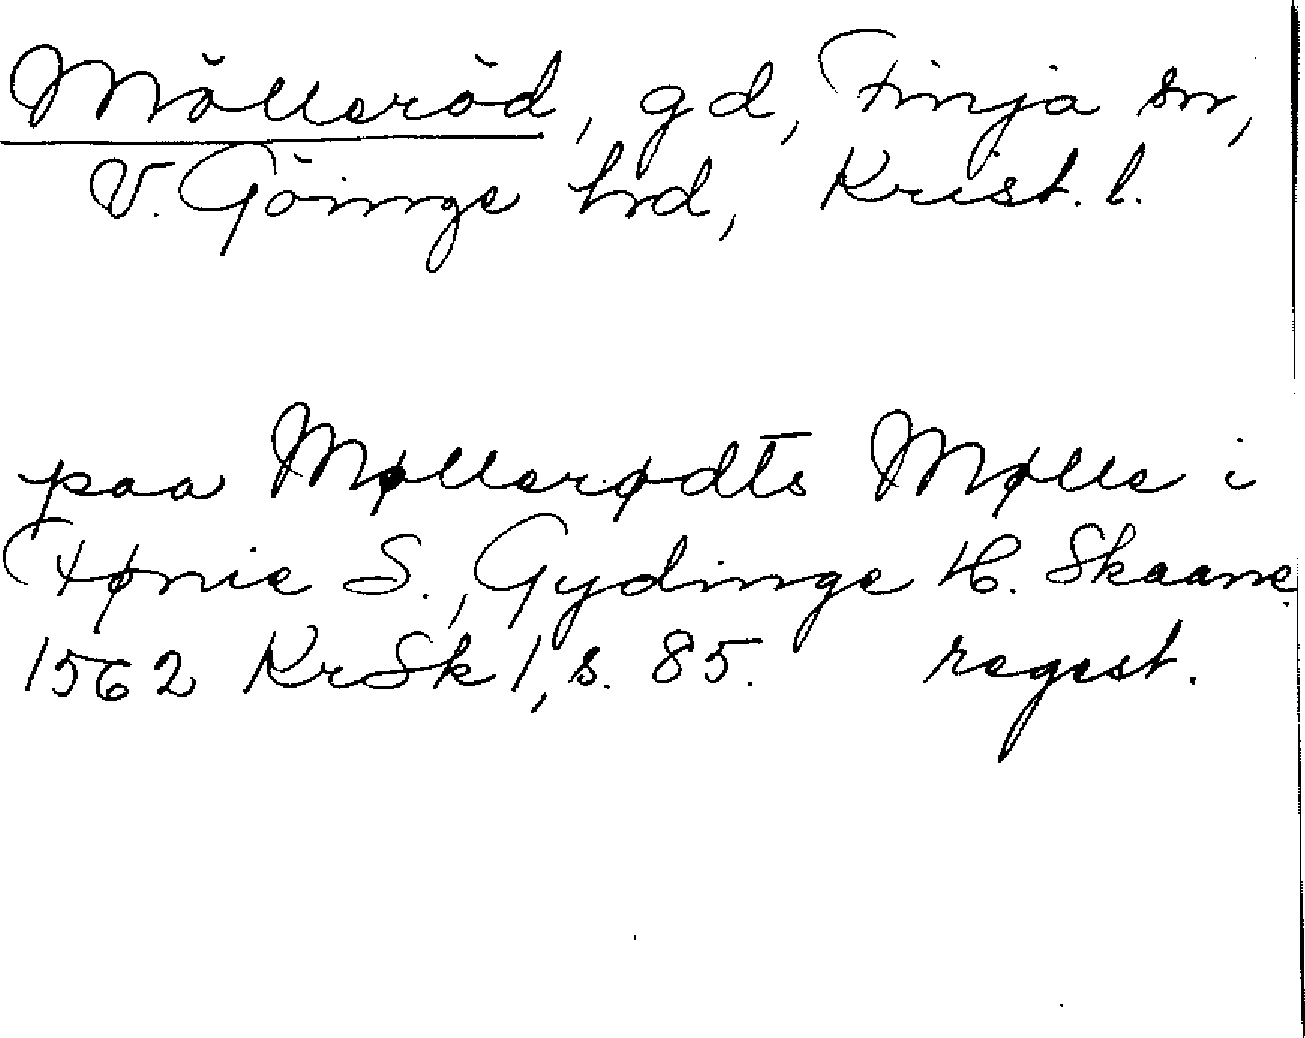 Mölleröd, gd, Finja sn,
V. Göinge hrd, Krist. l.
paa Møllerødts Mølle i
Fønie S., Gydinge H. Skaane
1562 KrSk 1, s. 85. regest.